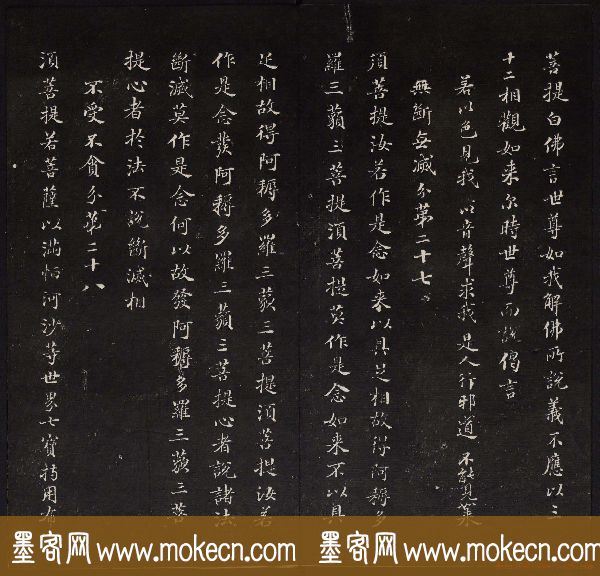 菩提白佛言世尊如我解佛所說義不應以三
十二相觀如来尔時世尊而說偈言
若以色見我以音聲求我是人行邪道不能見葉
無斷無滅分第二十七
須菩提汝若作是念如来以具足相故得阿耨多
羅三藐三菩提須菩提莫作是念如来不以具
足相故得阿耨多羅三藐三菩提須菩提汝若
作是念發阿耨多羅三藐三菩提心者說諸法
斷滅莫作是念何以故發阿耨多羅三藐三菩
提心者於法不說斷滅相
不受不貪分第二十八
須菩提若菩薩以滿恒河沙等世界七寶持用布
墨客网 www.mokecn.com 墨客网 www.mokecn.com